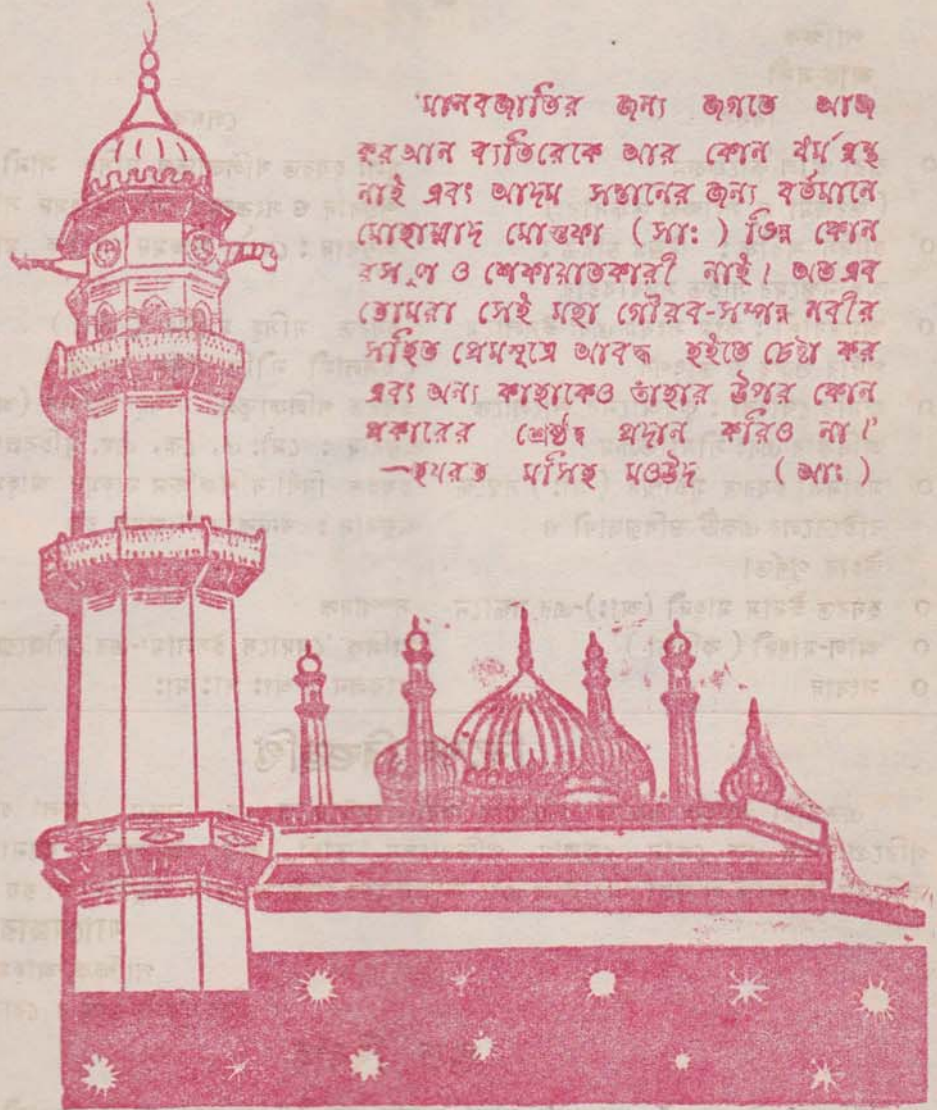 'মানবজাতির জন্য জগতে আজ
কুরআন ব্যতিরেকে আর কোন ধর্ম গ্রন্থ
নাই এবং আদম সন্তানের জন্য বর্তমানে
মোহাম্মাদ মোস্তফা (সাঃ) ভিন্ন কোন
রসূল ও শেফায়াতকারী নাই। অতএব
তোমরা সেই মহা গৌরব-সম্পন্ন নবীর
সহিত প্রেমসূত্রে আবদ্ধ হইতে চেষ্টা কর
এবং অন্য কাহাকেও তাঁহার উপর কোন
প্রকারের শ্রেষ্ঠত্ব প্রদান করিও না।'
—হযরত মসিহ মওউদ (আঃ)